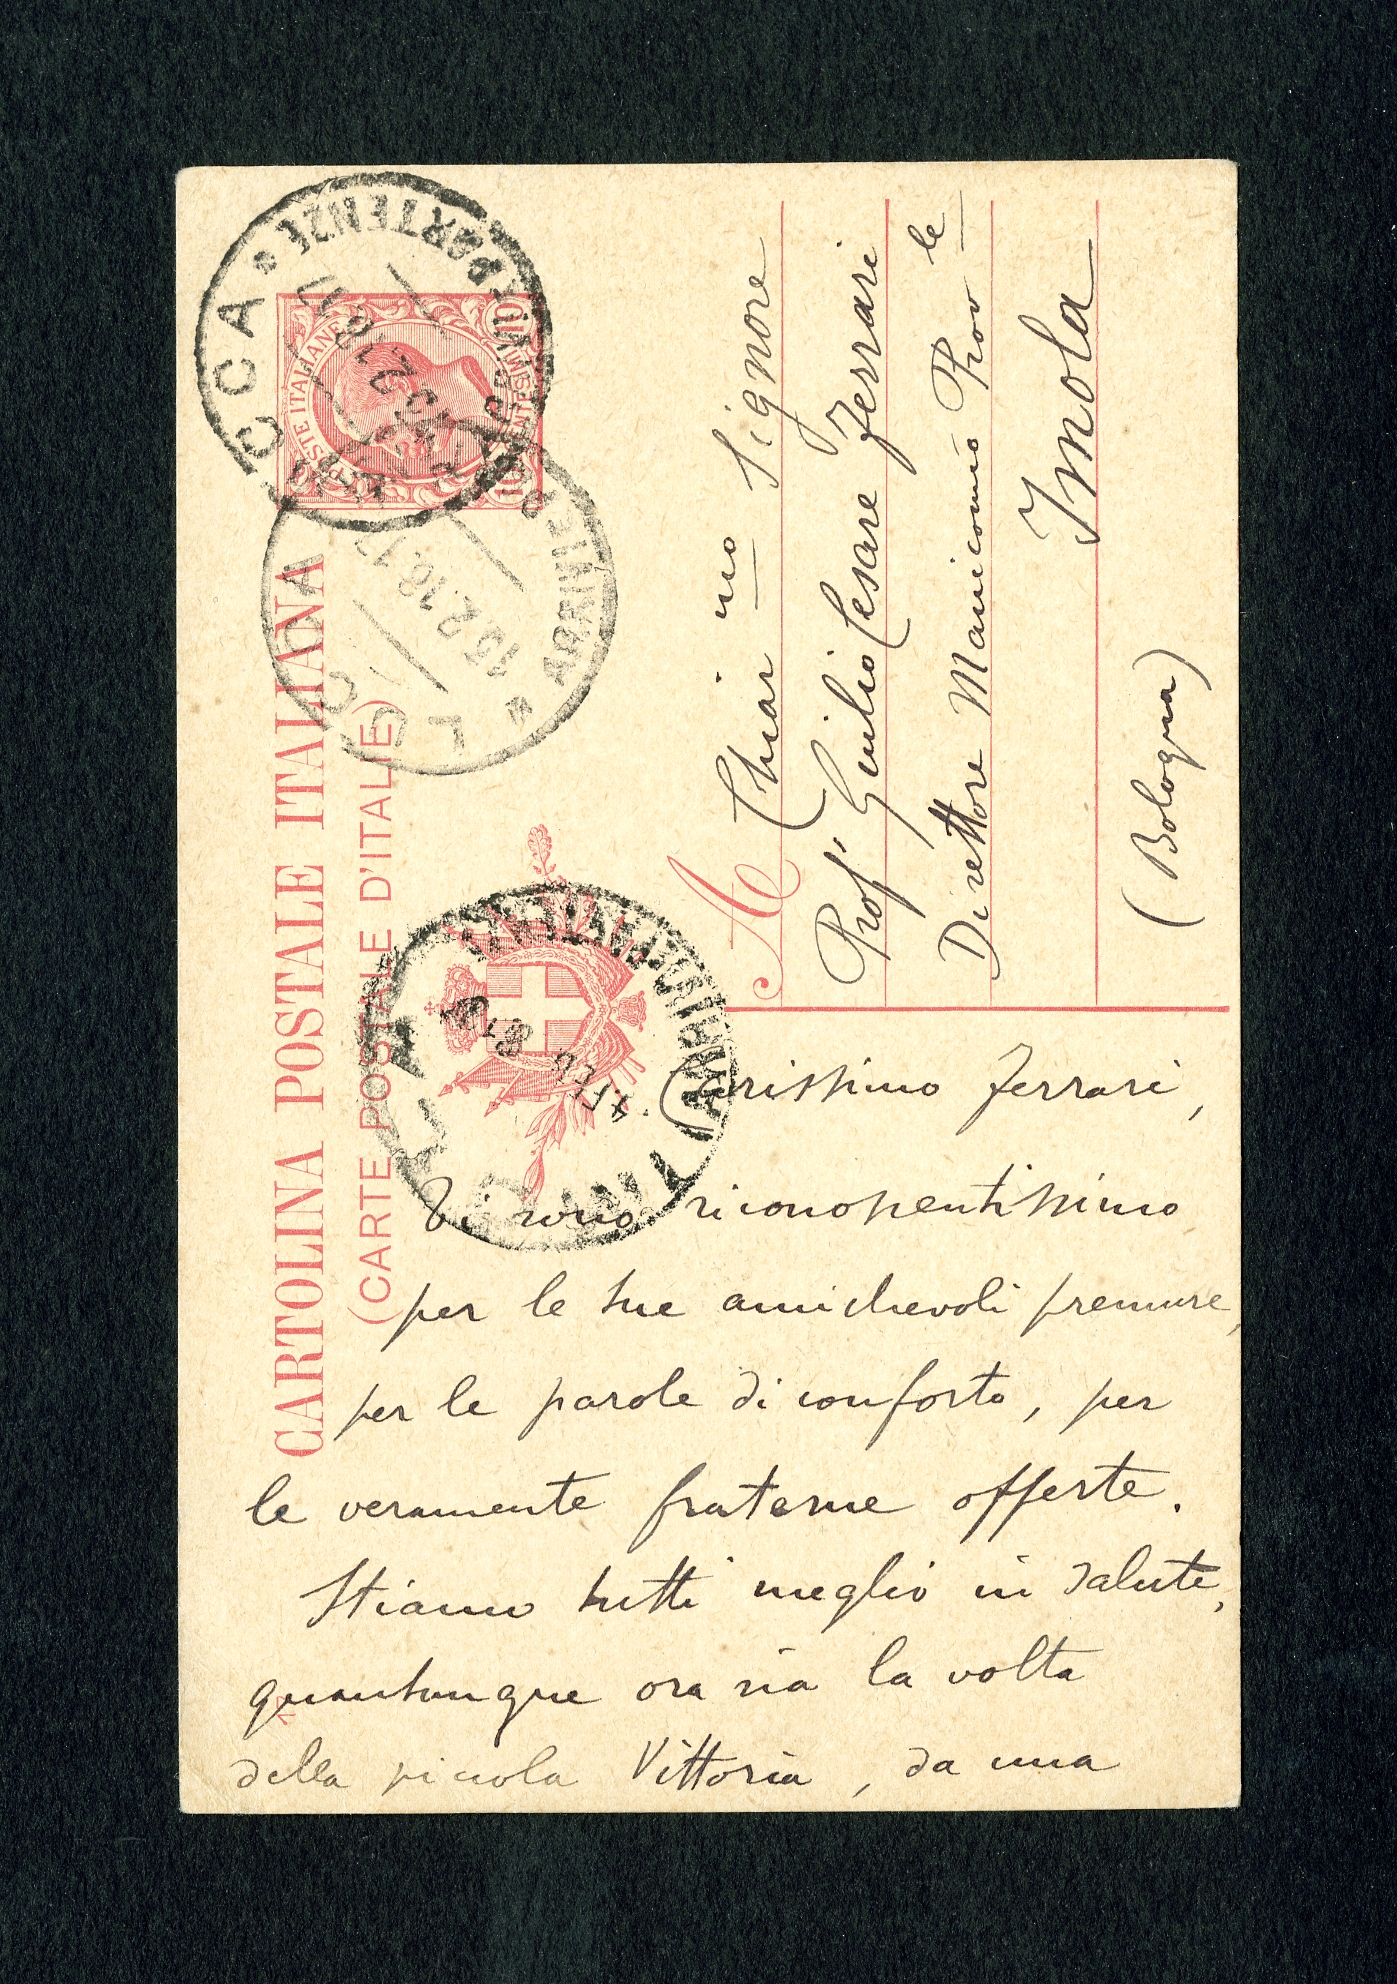 CARTOLINA POSTALE ITALIANA
(CARTE POSTALE D'ITALIE)
POSTE ITALIANE
10 CENTESIMI 10
LUCCA * ARRIVI E PARTENZE
13 2 18 17
LUCCA * ARRIVI E
13.2.18.17
ARRIVI
FEB
A Chiar.mo Signore
Prof. Giulio Cesare Ferrari
Direttore Manicomio Prov.le
Imola
(Bologna)
Carissimo Ferrari,
Ti sono riconoscentissimo
per le tue amichevoli premure,
per le parole di conforto, per
le veramente fraterne offerte.
Stiamo tutti meglio in salute,
quantunque ora sia la volta
della piccola Vittoria, da una